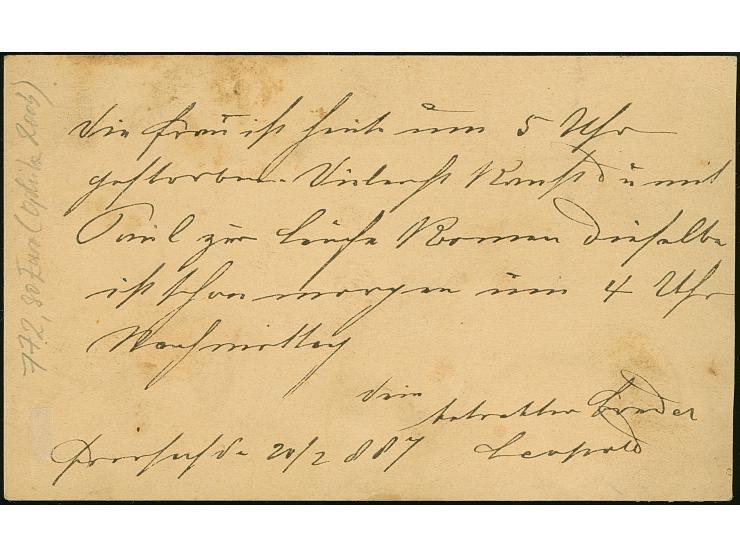 die Frau ist heute um 5 Uhr
gestorben. Vieleicht Kanst du mit
Paul zur Leiche Komen dieselbe
ist schon morgen um 4 Uhr
Nachmittag
dein
betrübter Bruder
20/2 887 Leopold
772, 80 Euro